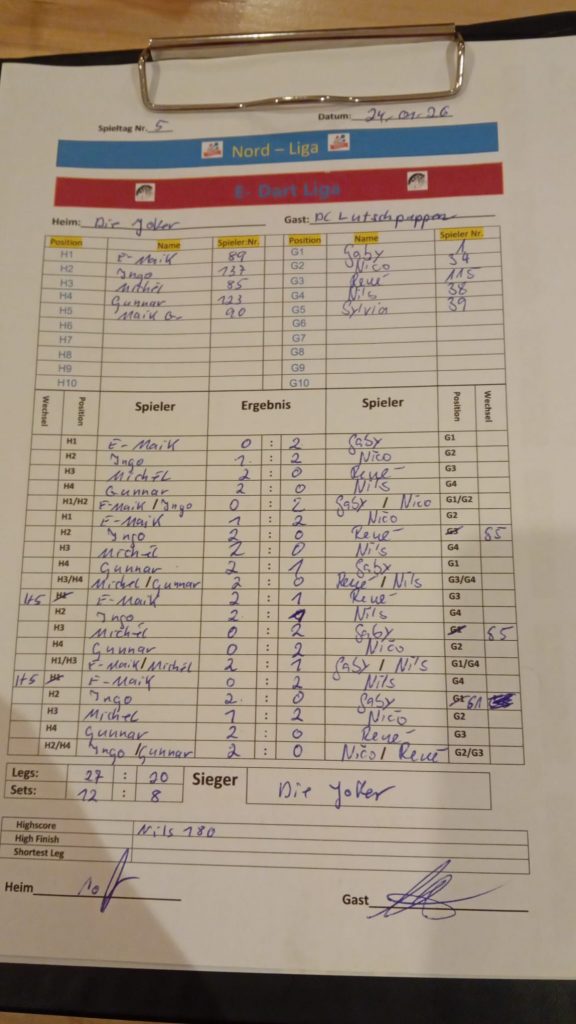 Spieltag Nr. 5 Datum: 24.01.26
Nord – Liga
E- Dart Liga
Heim: Die Joker Gast: DC Lutschpuppen
Position Name Spieler.Nr. Position Name Spieler Nr.
H1 E-Maik 89 G1 Gaby 1
H2 Ingo 137 G2 Nico 34
H3 Michél 85 G3 René 115
H4 Gunnar 123 G4 Nils 38
H5 Maik G. 90 G5 Sylvia 39
H6 G6
H7 G7
H8 G8
H9 G9
H10 G10
Wechsel Position Spieler Ergebnis Spieler Position Wechsel
H1 E-Maik 0 : 2 Gaby G1
H2 Ingo 1 : 2 Nico G2
H3 Michél 2 : 0 René G3
H4 Gunnar 2 : 0 Nils G4
H1/H2 E-Maik/Ingo 0 : 2 Gaby / Nico G1/G2
H1 E-Maik 1 : 2 Nico G2
H2 Ingo 2 : 0 René G3 G5
H3 Michél 2 : 0 Nils G4
H4 Gunnar 2 : 1 Gaby G1
H3/H4 Michél/Gunnar 2 : 0 René / Nils G3/G4
H5 H1 E-Maik 2 : 1 René G3
H2 Ingo 2 : 1 Nils G4
H3 Michél 0 : 2 Gaby G1 G5
H4 Gunnar 0 : 2 Nico G2
H1/H3 E-Maik/Michél 2 : 1 Gaby / Nils G1/G4
H5 H1 E-Maik 0 : 2 Nils G4
H2 Ingo 2 : 0 Gaby G1 G1
H3 Michél 1 : 2 Nico G2
H4 Gunnar 2 : 0 René G3
H2/H4 Ingo/Gunnar 2 : 0 Nico/ René G2/G3
Legs: 27 : 20 Sieger Die Joker
Sets: 12 : 8
Highscore Nils 180
High Finish
Shortest Leg
Heim
Gast